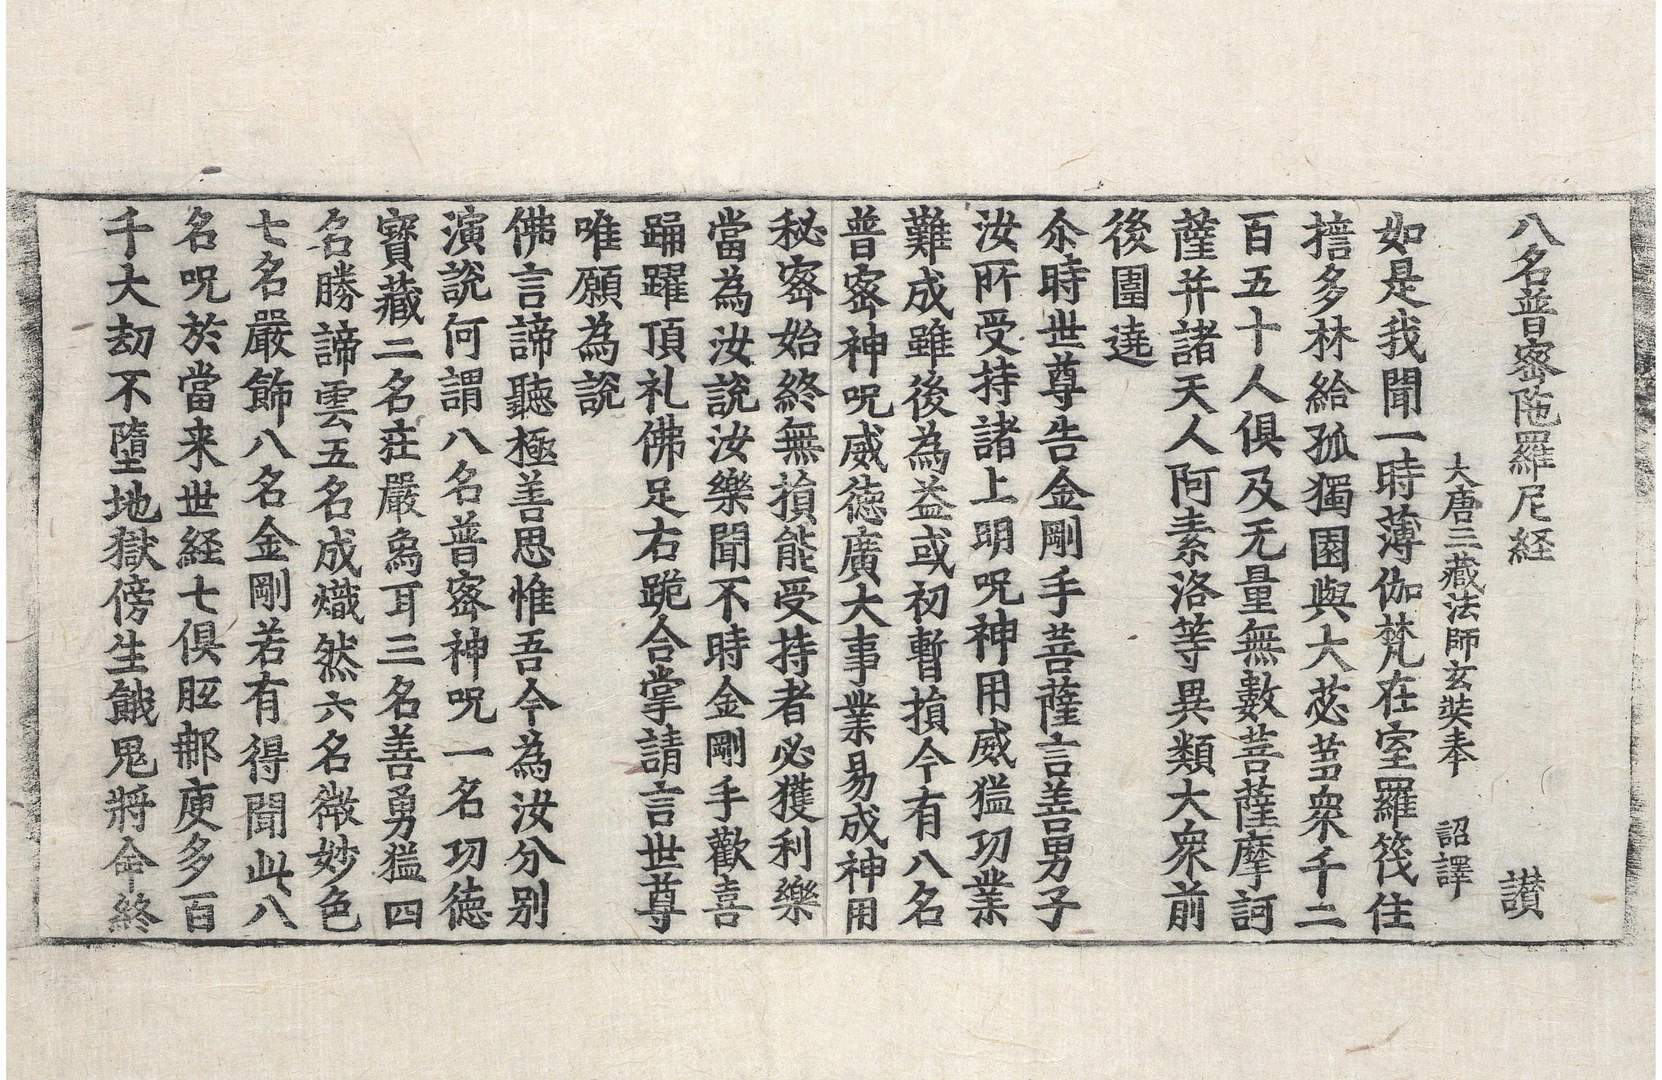 八名普密陁羅尼経 讃
大唐三藏法師玄奘奉 詔譯
如是我聞一時薄伽梵在室羅筏住
擔多林給孤獨園與大苾芻衆千二
百五十人俱及无量無數菩薩摩訶
薩并諸天人阿素洛等異類大衆前
後圍遶
尒時世尊告金剛手菩薩言善男子
汝所受持諸上明呪神用威猛功業
難成雖後為益或初暫損今有八名
普密神呪威德廣大事業易成神用
秘密始終無損能受持者必獲利樂
當為汝說汝樂聞不時金剛手歡喜
踊躍頂礼佛足右跪合掌請言世尊
唯願為說
佛言諦聽極善思惟吾今為汝分别
演說何謂八名普密神呪一名功德
寶藏二名莊嚴象耳三名善勇猛四
名勝諦雲五名成熾然六名微妙色
七名嚴飾八名金剛若有得聞此八
名呪於當来世経七俱胝那庾多百
千大劫不墮地獄傍生餓鬼將命終